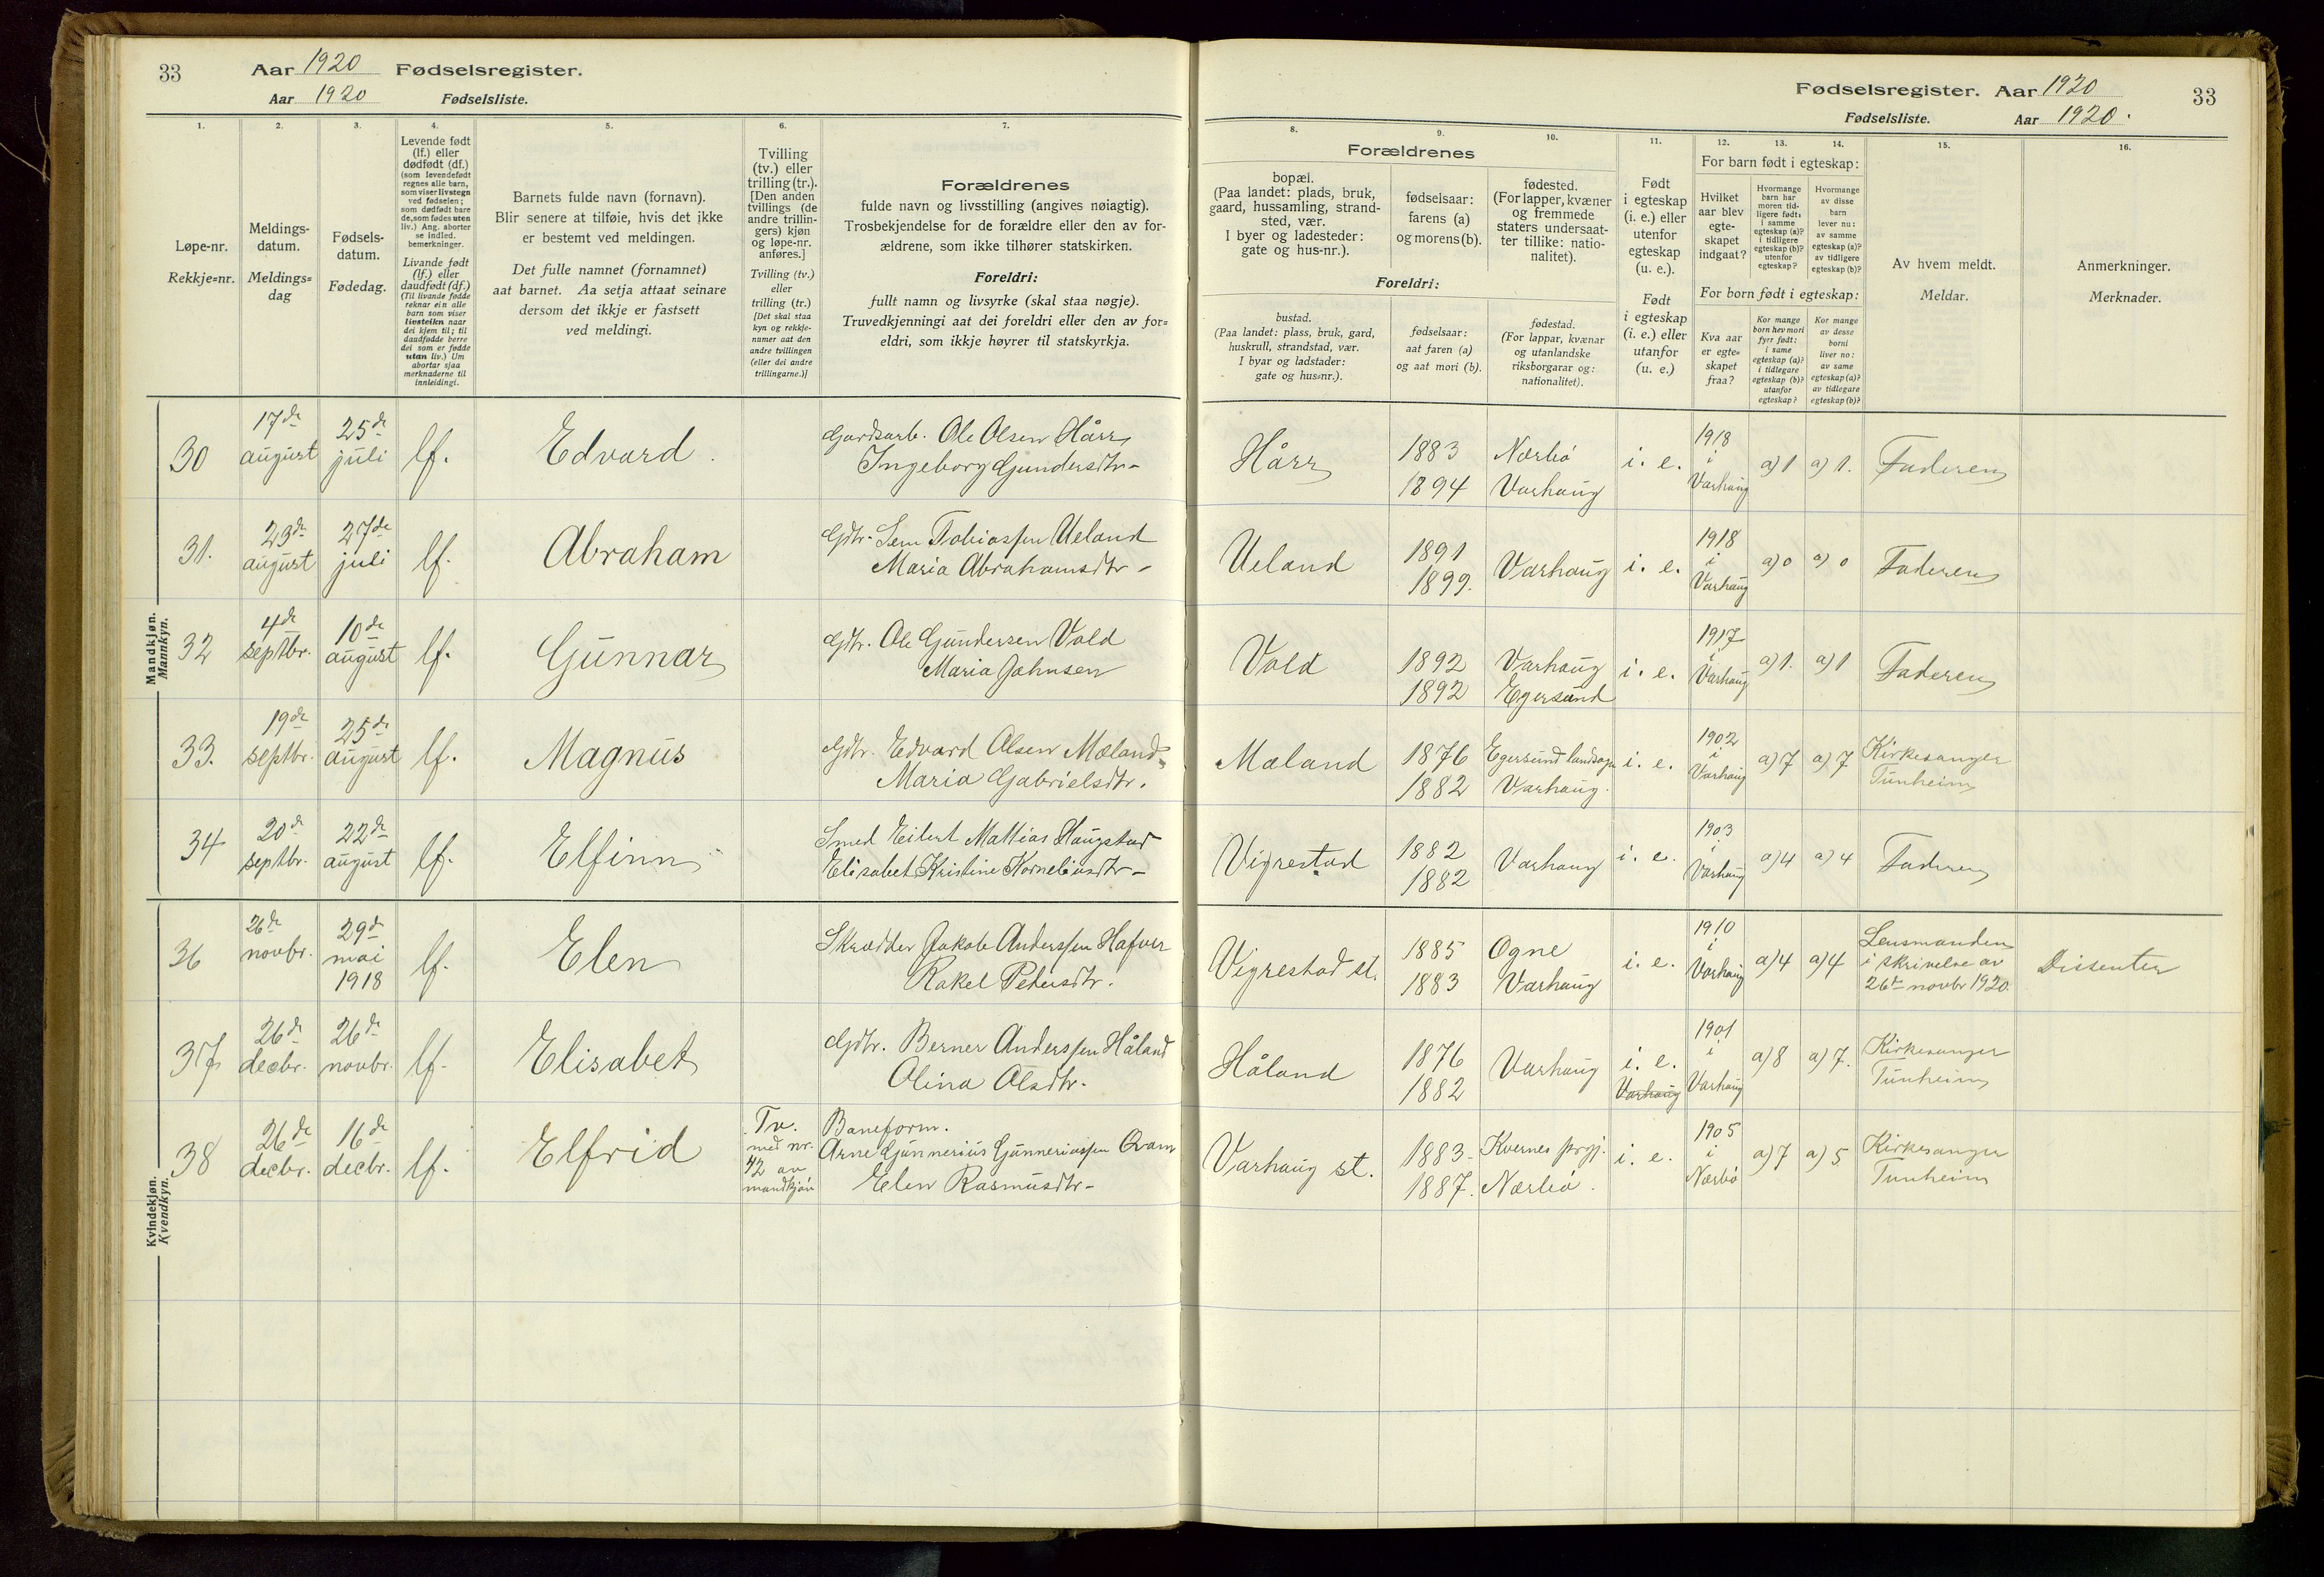 33 Aar 1920 Fødselsregister.
Aar 1920 Fødselsliste.
Fødselsregister. Aar 1920 33
Fødselsliste. Aar 1920.
1. 2. 3. 4. 5. 6. 7.
Løpe-nr.
Rekkje=nr.
Meldings-
datum.
Meldings=
dag
Fødsels-
datum.
Fødedag.
Levende født
(lf.) eller
dødfødt (df.)
(som levendefødt
regnes alle barn,
som viser livstegn
ved fødselen;
som dødfødt bare
de, som fødes uten
liv.) Ang. aborter
se indled.
bemerkninger.
Livande født
(lf.) eller
daudfødt (df.)
(Til livande fødde
reknar ein alle
barn som viser
livsteikn naar
dei kjem til; til
daudfødde berre
dei som er fødde
utan liv.) Um
abortar sjaa
merknaderne til
innleidingi.
Barnets fulde navn (fornavn).
Blir senere at tilføie, hvis det ikke
er bestemt ved meldingen.
Det fulle namnet (fornamnet)
aat barnet. Aa setja attaat seinare
dersom det ikkje er fastsett
ved meldingi.
Tvilling
(tv.) eller
trilling (tr.).
[Den anden
tvillings (de
andre trillin-
gers) kjøn
og løpe-nr.
anføres.]
Tvilling (tv.)
eller
trilling (tr.)
[Det skal staa
kyn og rekkje-
numer aat den
andre tvillingen
(eller dei andre
trillingarne.)]
Forældrenes
fulde navn og livsstilling (angives nøiagtig).
Trosbekjendelse for de forældre eller den av for-
ældrene, som ikke tilhører statskirken.
Foreldri:
fullt namn og livsyrke (skal staa nøgje).
Truvedkjenningi aat dei foreldri eller den av for=
eldri, som ikkje høyrer til statskyrkja.
8. 9. 10. 11. 12. 13. 14. 15. 16.
Forældrenes
bopæl.
(Paa landet: plads, bruk,
gaard, hussamling, strand-
sted, vær.
I byer og ladesteder:
gate og hus-nr.).
fødselsaar:
farens (a)
og morens (b).
fødested.
(For lapper, kvæner
og fremmede
staters undersaat-
ter tillike: natio-
nalitet).
Foreldri:
bustad.
(Paa landet: plass, bruk, gard,
huskrull, strandstad, vær.
I byar og ladstader:
gate og hus=nr.).
fødselsaar:
aat faren (a)
og aat mori (b).
fødestad.
(For lappar, kvænar
og utanlandske
riksborgarar og:
nationalitet).
Født
i egteskap
(i. e.) eller
utenfor
egteskap
(u. e.).
Født
i egteskap
(i. e.) eller
utanfor
(u. e.)
For barn født i egteskap:
Hvilket
aar blev
egte-
skapet
indgaat?
Hvormange
barn har
moren tid-
ligere født:
i samme
egteskap (a)?
i tidligere
egteskap (b)?
utenfor
egteskap?
Hvormange
av disse
barn
lever nu:
av samme
egteskap (a)?
av tidligere
egteskap (b)?
For born født i egteskap:
Kva aar
er egte=
skapet
fraa?
Kor mange
born hev mori
fyrr født:
i same
egteskap (a)?
i tidlegare
egteskap (b)?
utanfor
egteskap?
Kor mange
av desse
borni
liver no:
av same
egteskap (a)?
av tidlegare
egteskap (b)?
Av hvem meldt.
Meldar.
Anmerkninger.
Merknader.
Mandkjøn.
Mannkyn.
30 17de august 25de juli lf. Edvard. Gardsarb. Ole Olsen Hårr
Ingeborg Gundersdtr- Hårr 1883 1894 Nærbø Varhaug i. e. 1918 i Varhaug a) 1 a) 1. Faderen
31. 23de august 27de juli lf. Abraham Gdbr. Sem Tobiassen Ueland
Maria Abrahamsdtr- Ueland 1891 1899. Varhaug i. e. 1918 i Varhaug a) 0 a) 0 Faderen
32 4de septbr. 10de august lf. Gunnar Gdbr. Ole Gundersen Vold
Maria Johnsen Vold 1892 1892 Varhaug Egersund i. e. 1917 i Varhaug a) 1. a) 1 Faderen
33. 19de septbr. 25de august lf. Magnus Gdbr. Edvard Olsen Mæland
Maria Gabrielsdtr. Mæland 1876 1882 Egersund landsogn Varhaug. i. e. 1902 i Varhaug a) 7 a) 7 Kirkesanger Tunheim
34 20de septbr. 22de august lf. Elfinn Smed Eilert Mathias Haugstad
Elisabet Kristine Korneliusdtr- Vigrestad 1882 1882 Varhaug i. e. 1903 i Varhaug a) 4 a) 4 Faderen
Kvindekjøn.
Kvendkyn.
36 26de novbr. 29de mai 1918 lf. Elen Skrædder Jakob Anderssen Hafver
Rakel Pedersdtr. Vigrestad st. 1885 1883 Ogne Varhaug i. e. 1910 i Varhaug a) 4 a) 4 Lensmanden i skrivelse av 26de novbr 1920. Dissenter
37 26de decbr. 26de novbr. lf. Elisabet Gdbr. Berner Anderssen Håland
Olina Olsdtr. Håland 1876 1882 Varhaug i. e. Varhaug 1901 i Varhaug a) 8 a) 7. Kirkesanger Tunheim
38 26de decbr. 16de decbr. lf. Elfrid Tv. med nr. 42 av mandkjøn Baneform.
Arne Gunnerius Gunneriussen Qvam
Elen Rasmusdtr- Varhaug st. 1883. 1887. Kvernes prgj. Nærbø. i. e. 1905 i Nærbø a) 7 a) 5 Kirkesanger Tunheim